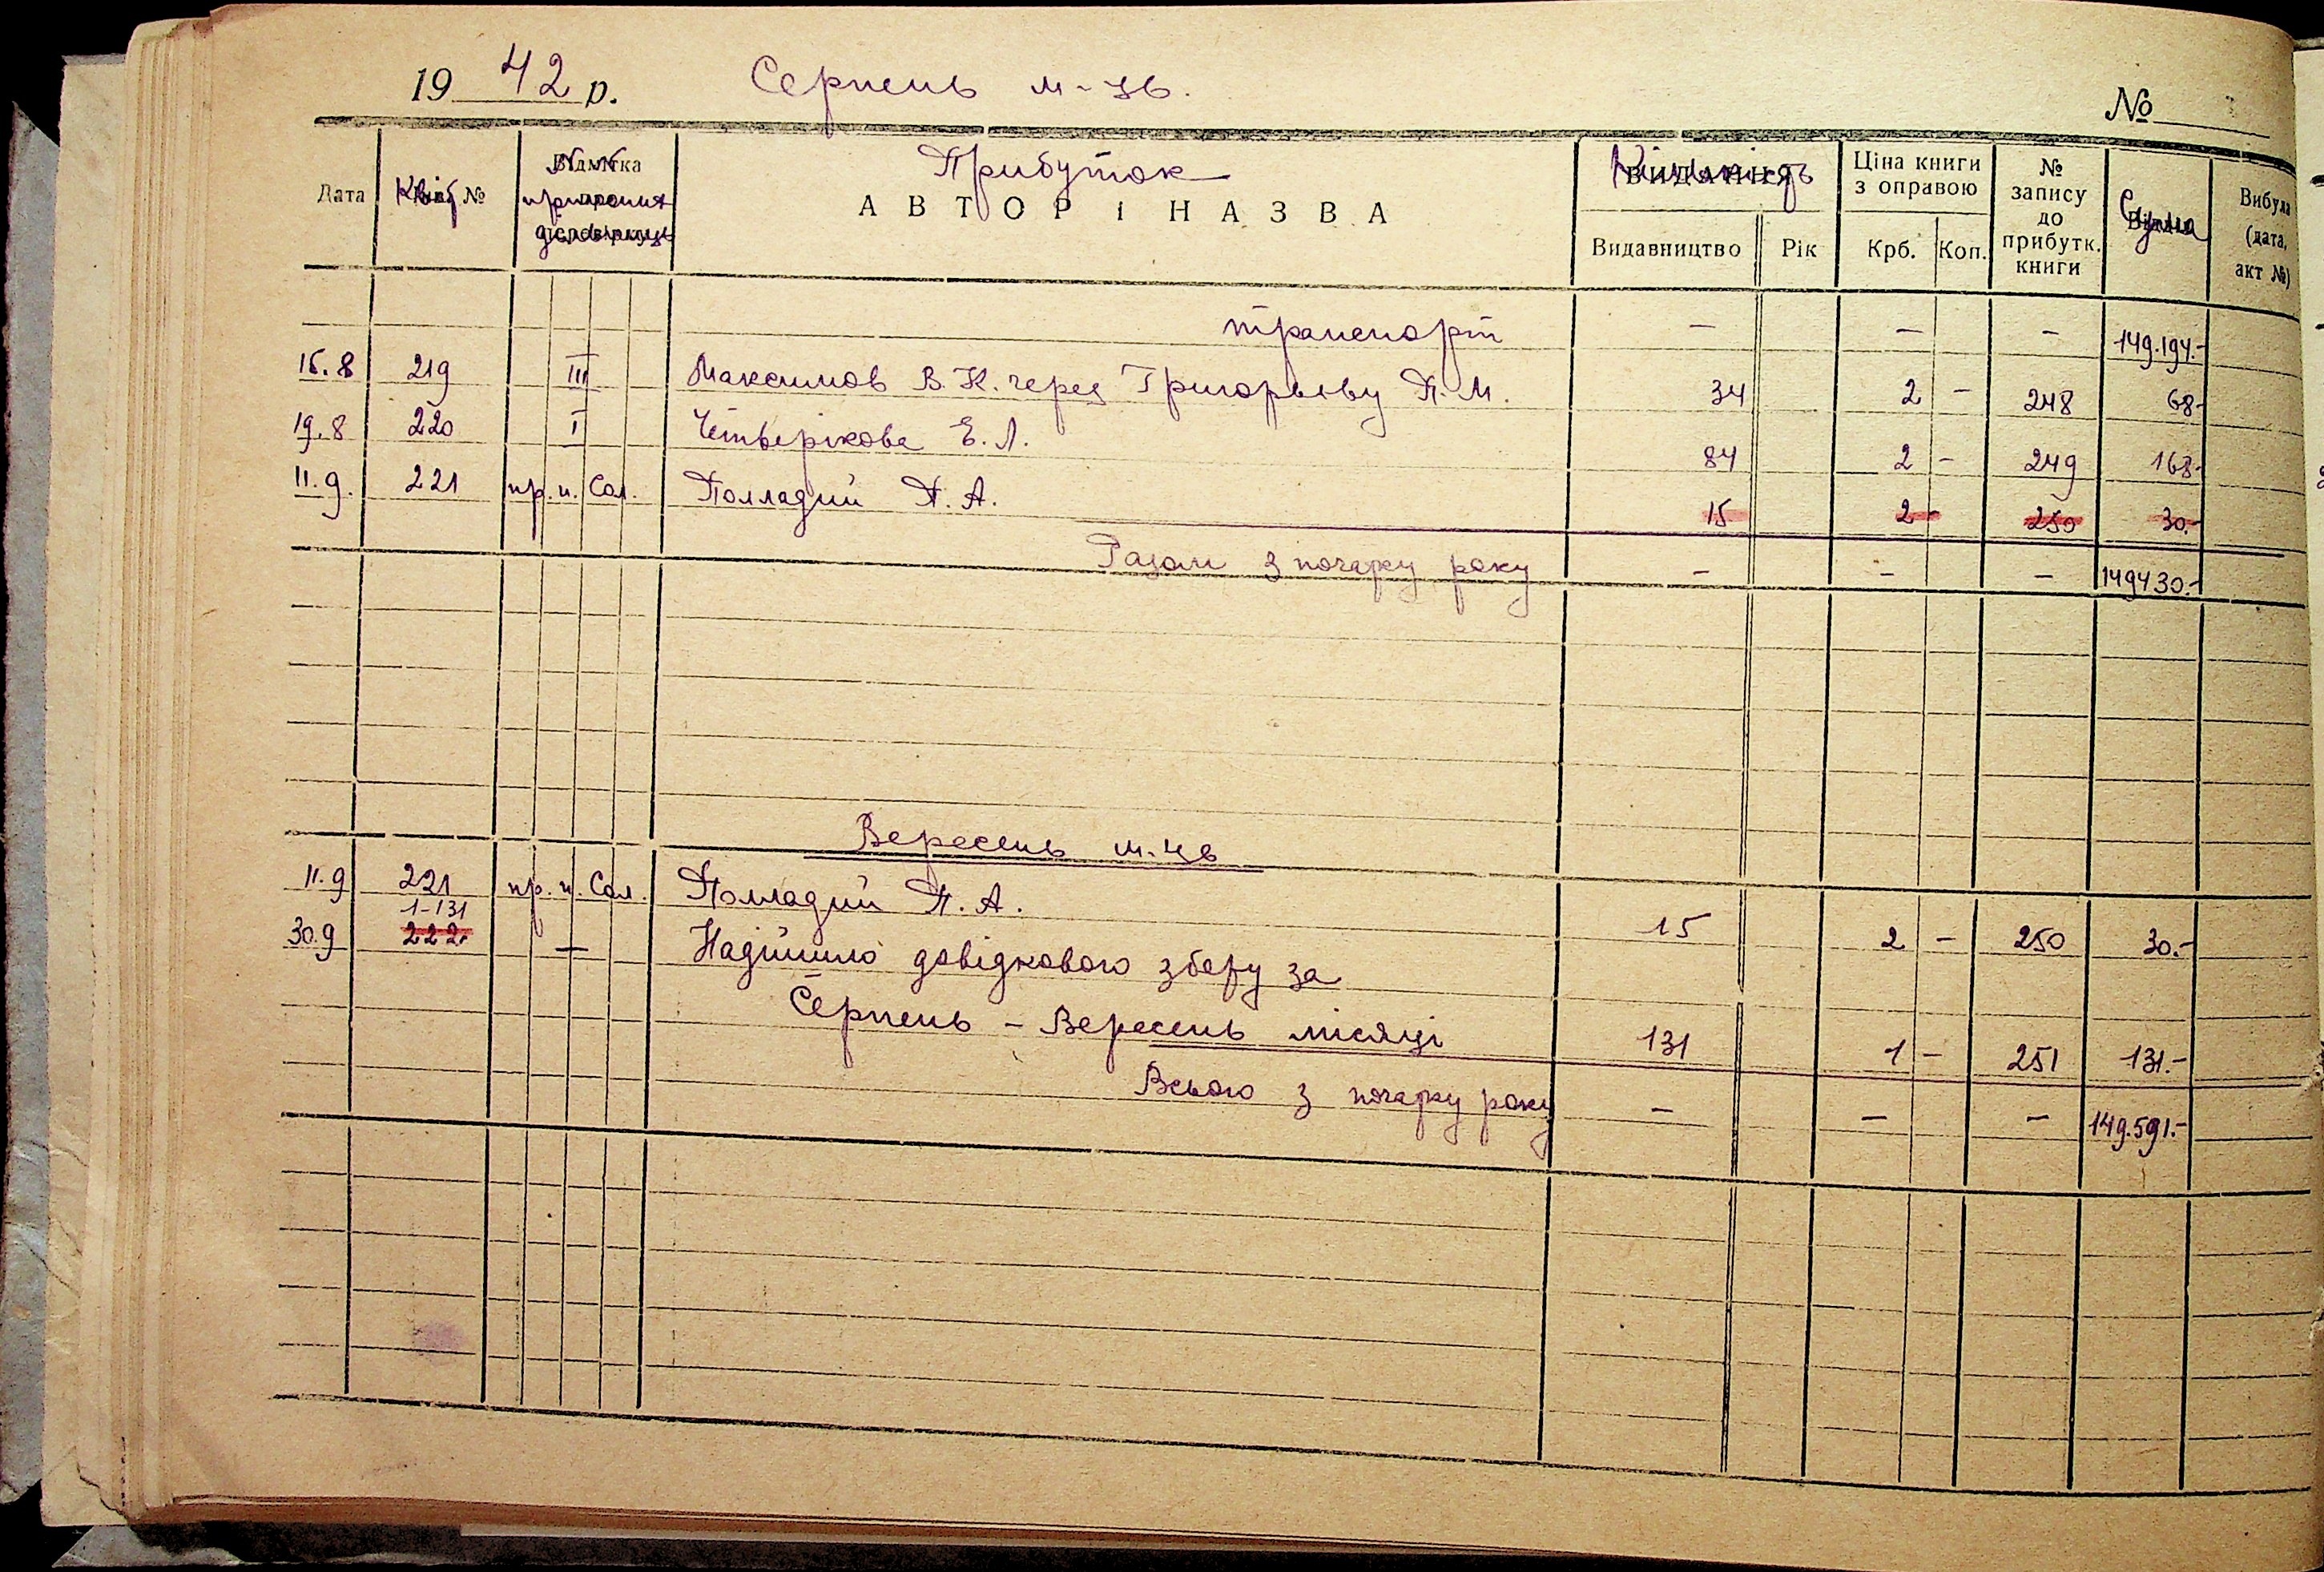 19 42 р. Серпень м-ць. №
Дата Квіт № Відмітка Прибуток Кількість Ціна книги з оправою № запису до прибутк. книги Сума Вибула (дата, акт №)
АВТОР і НАЗВА
Видавництво Рік Крб. Коп.
транспорт — — — 149.194.-
15.8 219 III Максимов В.К. через Григорьеву П.М. 34 2 - 248 68-
19.8 220 I Четверікова Е.Л. 84 2 - 249 168-
11.9. 221 пр. п. Сол. Полладий П.А. 15 2 - 250 30.-
Разом з початку року — — — 149430.-
Вересень м-ць
11.9 221 пр. п. Сол. Полладий П.А. 15 2 - 250 30.-
1-131
30.9 222 — Надійшло довідкового збору за
Серпень - Вересень місяці 131 1 - 251 131.-
Всього з початку року — — — 149.591.-